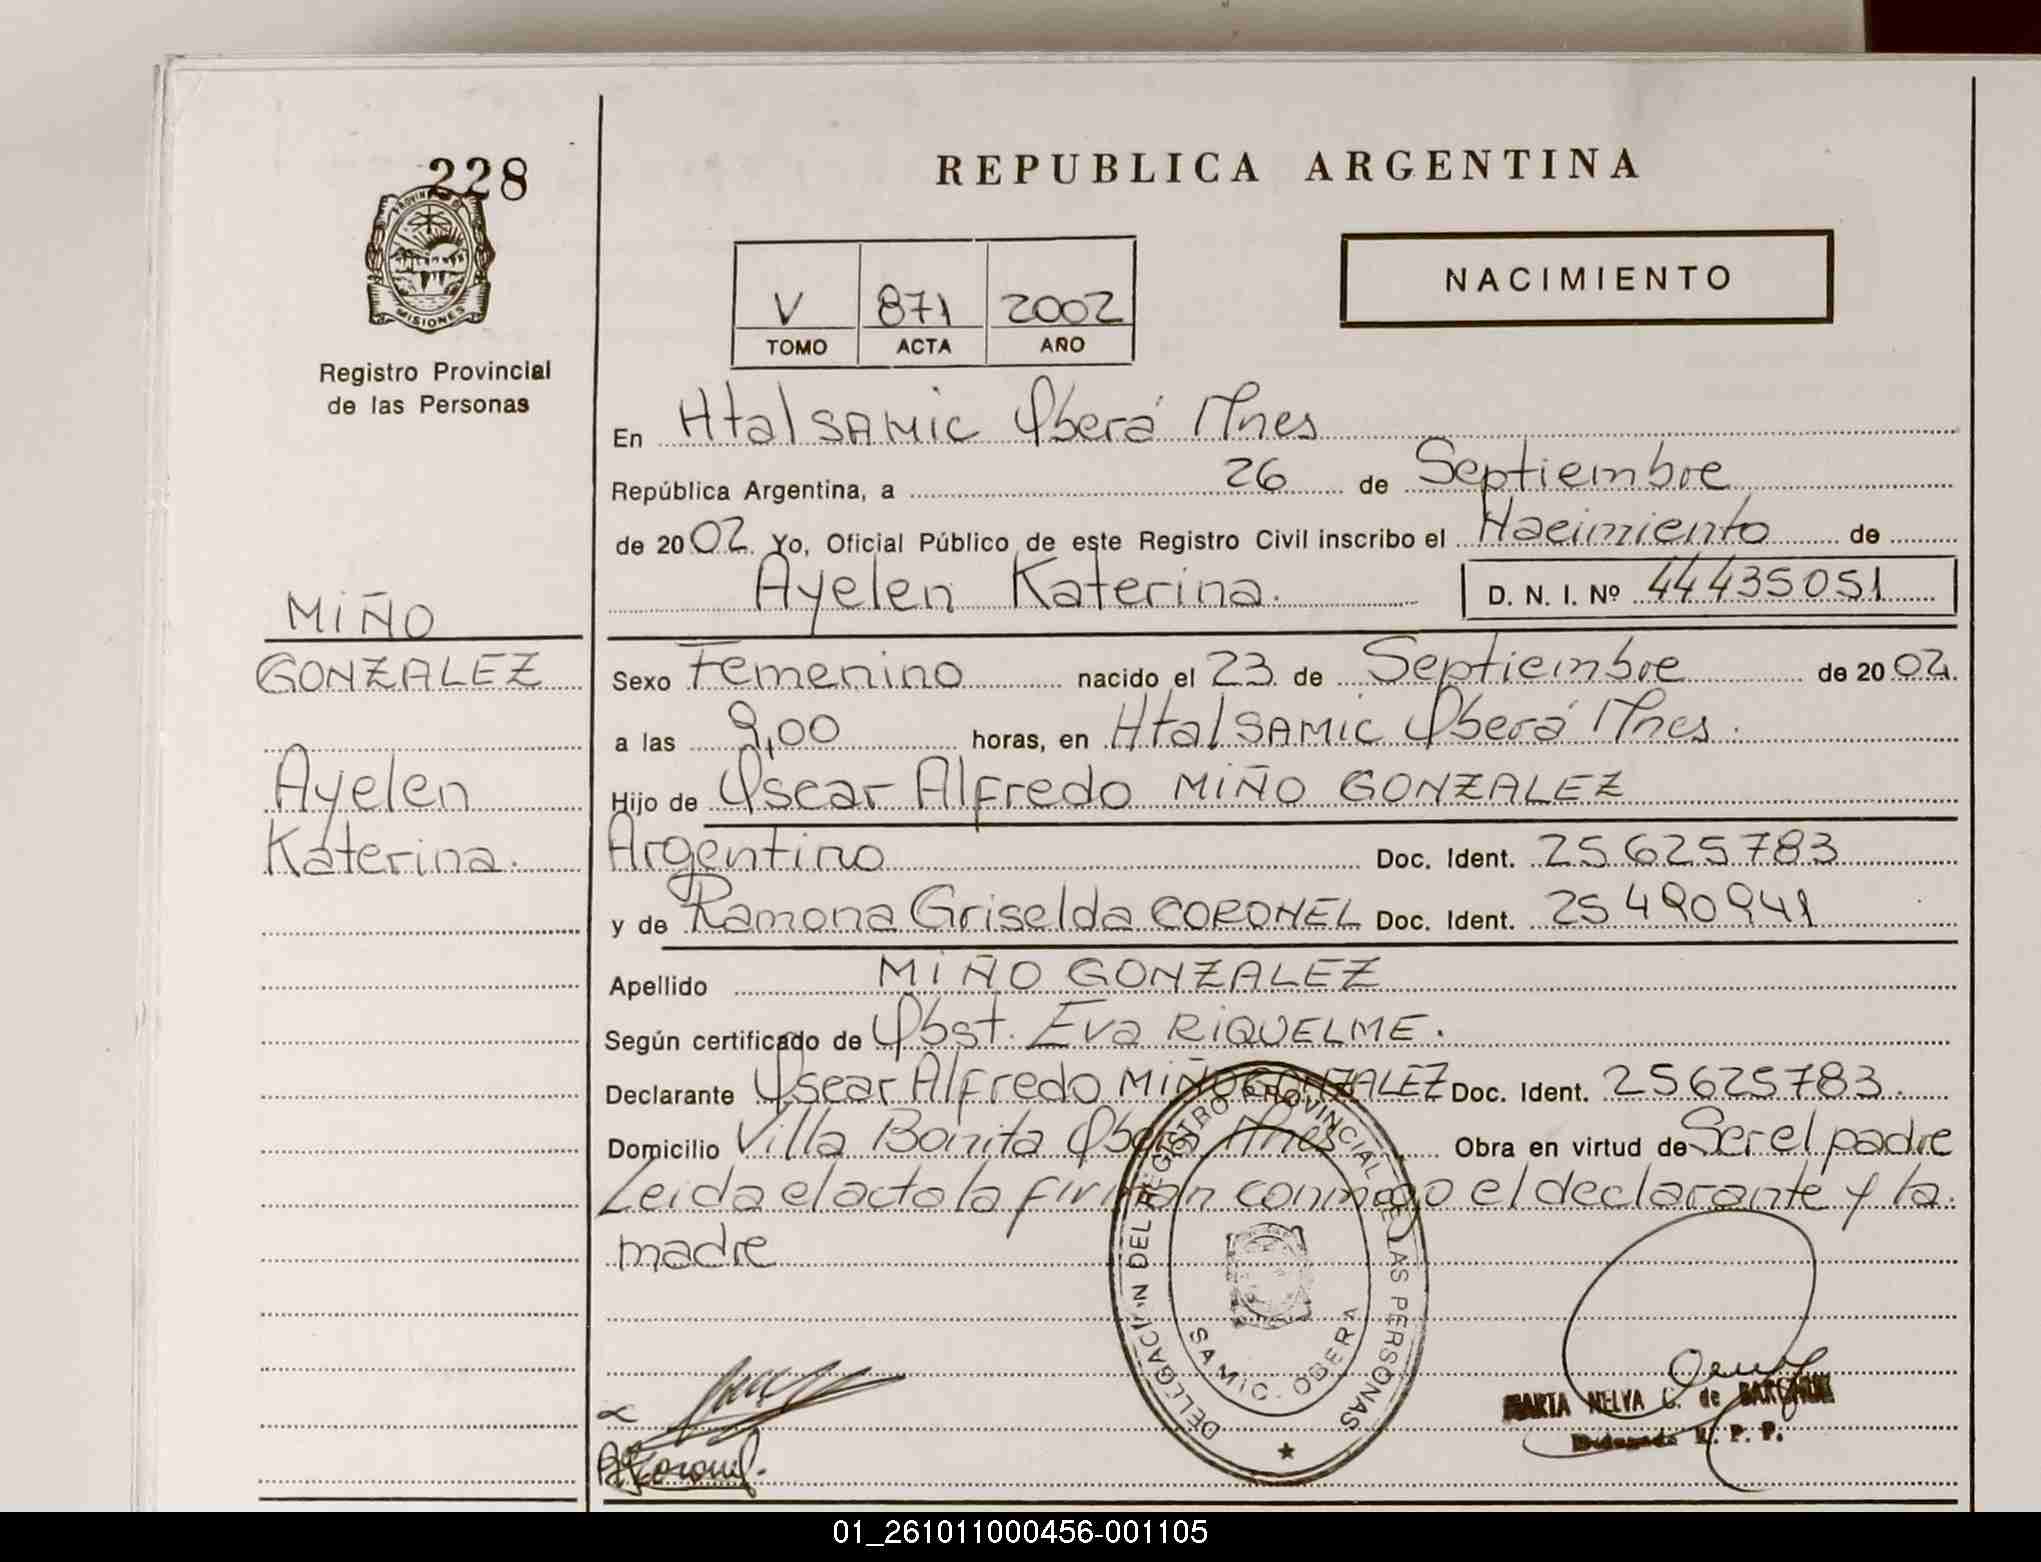 228
PROVINCIA DE
MISIONES
Registro Provincial
de las Personas
MIÑO
GONZALEZ
Ayelen
Katerina.
REPUBLICA ARGENTINA
NACIMIENTO
V 871 2002
TOMO ACTA AÑO
En Htal SAMIC Oberá Mnes
República Argentina, a 26 de Septiembre
de 2002. Yo, Oficial Público de este Registro Civil inscribo el Nacimiento de
Ayelen Katerina. D. N. I. Nº 44435051
Sexo Femenino nacido el 23 de Septiembre de 2002.
a las 9,00 horas, en Htal SAMIC Oberá Mnes.
Hijo de Oscar Alfredo MIÑO GONZALEZ
Argentino Doc. Ident. 25625783
y de Ramona Griselda CORONEL Doc. Ident. 25490941
Apellido MIÑO GONZALEZ
Según certificado de Obst. Eva RIQUELME.
Declarante Oscar Alfredo MIÑO GONZALEZ Doc. Ident. 25625783.
Domicilio Villa Bonita Oberá Mnes Obra en virtud de Ser el padre
Leida el acta la firman conmigo el declarante y la
madre
DELEGACION DEL REGISTRO PROVINCIAL DE LAS PERSONAS
SAMIC. OBERA
MARIA NELVA C. de
Delegada R. P. P.
01_261011000456-001105